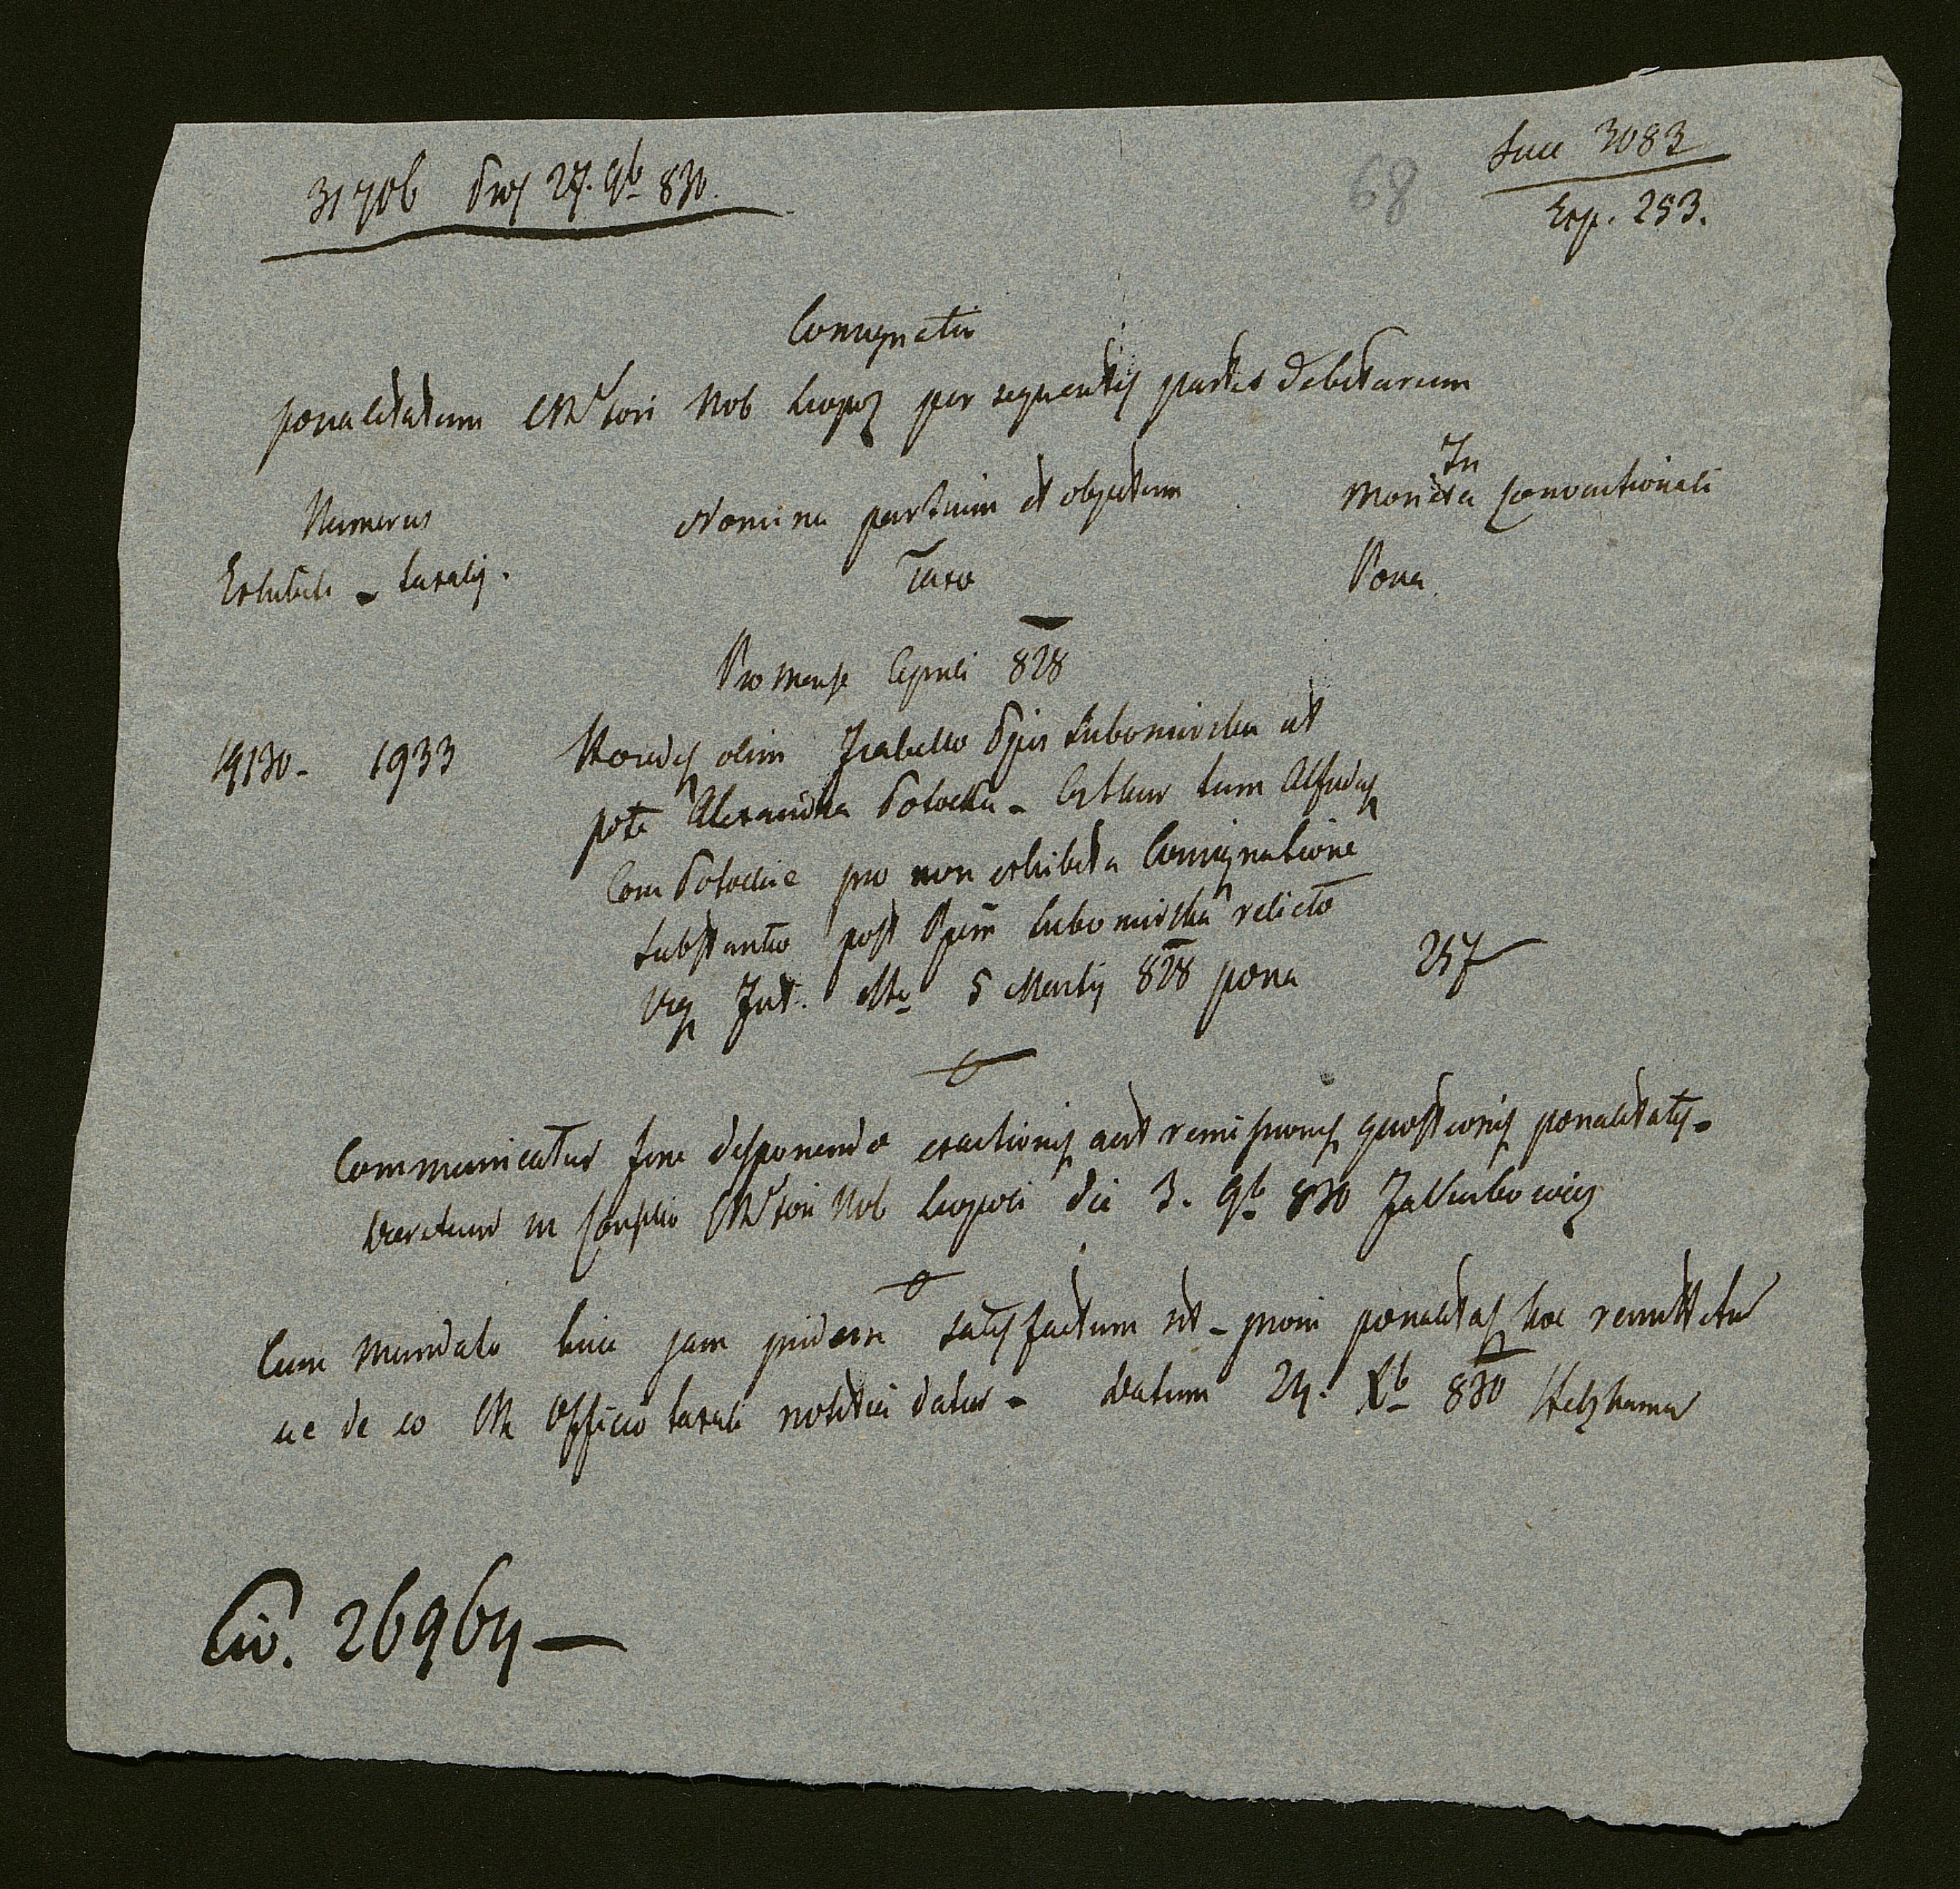 31706 Pres 27. 9b 830.
68
Succ 3083
Exp. 253.
Consignatio
poenalitatum CR Fori Nob Leopol per sequentes partes debitarum
Numerus
Nomina partium et objectum
In
Moneta Conventionali
Exhibiti - taxalis.
Taxae
Poena
Pro Mense Aprili 828
19130 - 1933
Haeredes olim Isabellae Ppis Lubomirska ut
pote Alexandra Potocka - Arthur tum Alfredus
Com Potockie pro non exhibita Consignatione
substantiae post Ppem Lubomirska relictae
Vig Int. 5 Martij 828 poena
25f
Communicatur fine disponendae exactionis aut remissionis quaestionis poenalitatis.
Decretum in Consilio CR Fori Nob Leopoli die 3. 9b 830 Jakubowicz
Cum mandato huic jam pridem satisfactum sit - proin poenalitas haec remittitur
ac de eo CR Officio taxali notitia datur - Datum 24. Xb 830
Civ. 26964 —